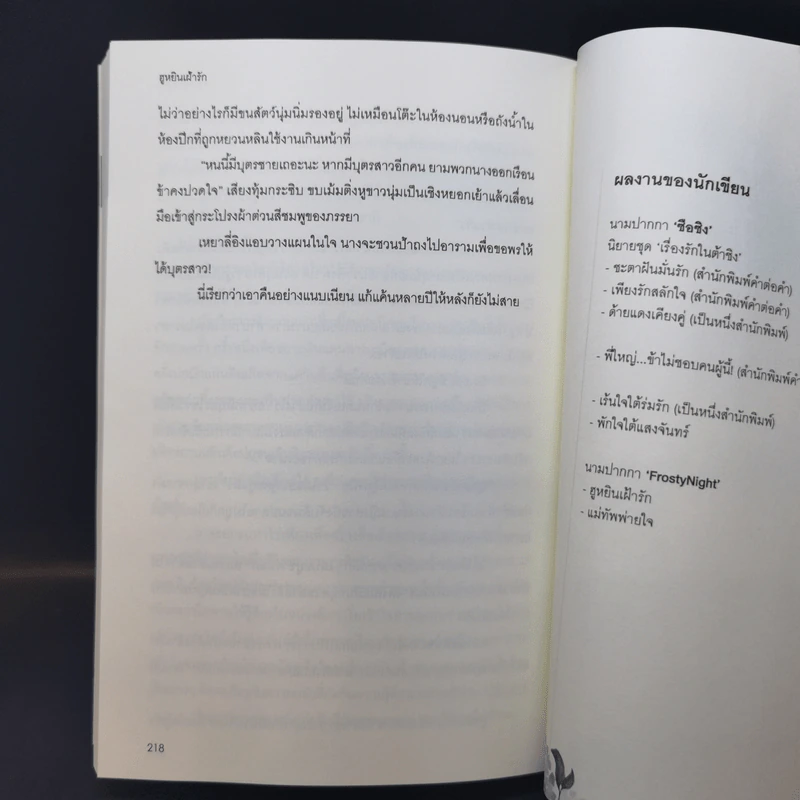 ฮูหยินเฝ้ารัก
ไม่ว่าอย่างไรก็มีขนสัตว์นุ่มนิ่มรองอยู่ ไม่เหมือนโต๊ะในห้องนอนหรือถังน้ำใน
ห้องปีกที่ถูกหยวนหลินใช้งานเกินหน้าที่
"หนนี้มีบุตรชายเถอะนะ หากมีบุตรสาวอีกคน ยามพวกนางออกเรือน
ข้าคงปวดใจ" เสียงทุ้มกระซิบ ขบเม้มติ่งหูขาวนุ่มเป็นเชิงหยอกเย้าแล้วเลื่อน
มือเข้าสู่กระโปรงผ้าต่วนสีชมพูของภรรยา
เหยาลี่อิงแอบวางแผนในใจ นางจะชวนป้าถงไปอารามเพื่อขอพรให้
ได้บุตรสาว!
นี่เรียกว่าเอาคืนอย่างแนบเนียน แก้แค้นหลายปีให้หลังก็ยังไม่สาย
218
ผลงานของนักเขียน
นามปากกา 'ซือชิง'
นิยายชุด 'เรื่องรักในต้าชิง'
- ชะตาฝันมั่นรัก (สำนักพิมพ์คำต่อคำ)
- เพียงรักสลักใจ (สำนักพิมพ์คำต่อคำ)
- ด้ายแดงเคียงคู่ (เป็นหนึ่งสำนักพิมพ์)
- พี่ใหญ่...ข้าไม่ชอบคนผู้นี้! (สำนักพิมพ์คำ
- เร้นใจใต้ร่มรัก (เป็นหนึ่งสำนักพิมพ์)
- พักใจใต้แสงจันทร์
นามปากกา 'FrostyNight'
- ฮูหยินเฝ้ารัก
- แม่ทัพพ่ายใจ